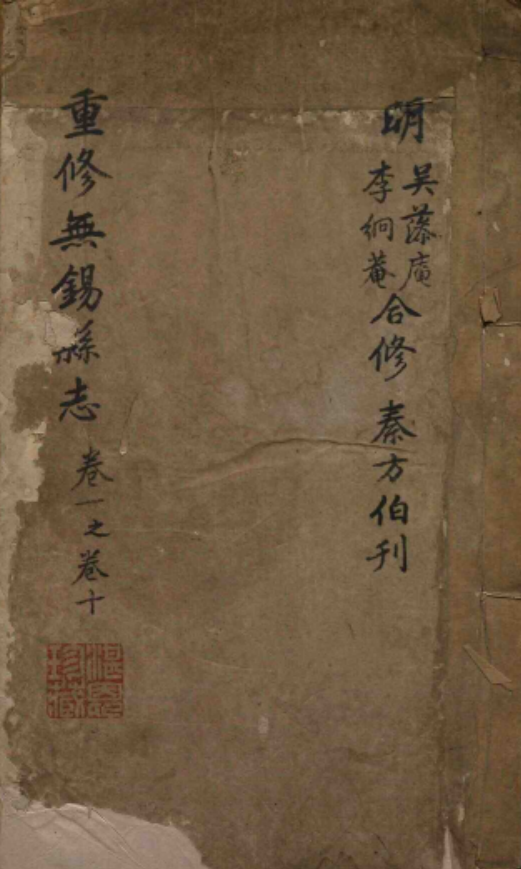 明吳李絅菴合修 秦方伯刊
重修無錫縣志 卷一之卷十
珍藏